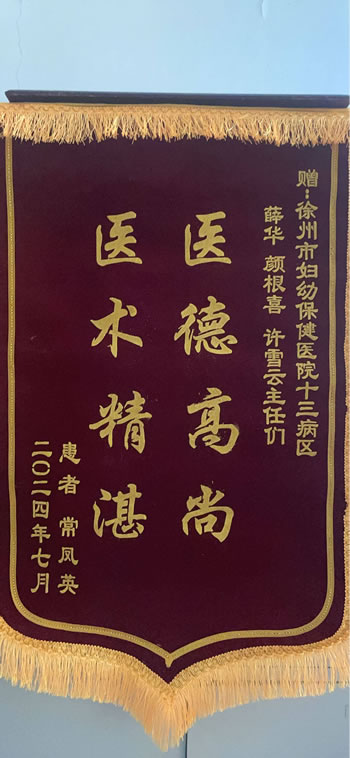 赠:徐州市妇幼保健医院十三病区
薛华 颜根喜 许雪云主任们
医德高尚
医术精湛
患者 常凤英
二〇二四年七月